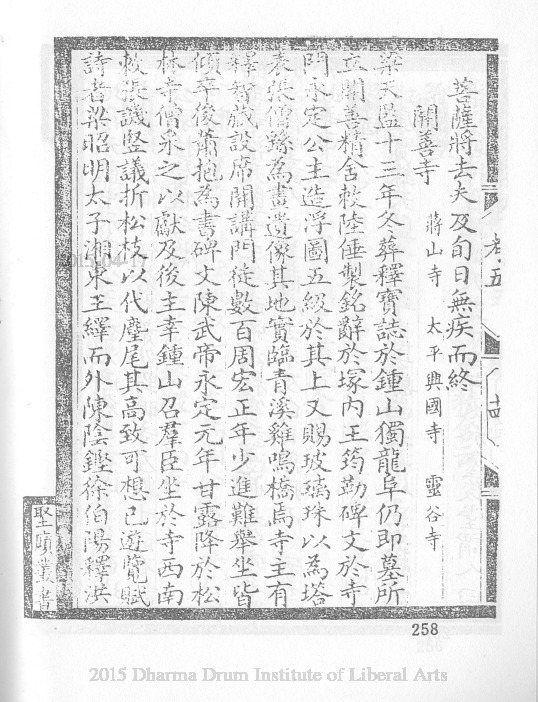 菩薩將去夫及旬日無疾而終
開善寺 蔣山寺 太平興國寺 靈谷寺
梁天監十三年冬葬釋寶誌於鍾山獨龍阜仍即墓所
立開善精舍敕陸倕製銘辭於塚內王筠勒碑文於寺
門永定公主造浮圖五級於其上又賜玻璃珠以為塔
表張僧繇為畫遺像其地實臨青溪雞鳴橋焉寺主有
釋智藏設席開講門徒數百周宏正年少進難舉坐皆
傾卒後蕭抱為書碑文陳武帝永定元年甘露降於松
林寺僧泉之以獻及後主幸鍾山召羣臣坐於寺西南
敕張譏豎議折松枝以代麈尾其高致可想已遊覽賦
詩者梁昭明太子湘東王繹而外陳陰鏗徐伯陽釋洪
考五
堅匏叢書
258
2015 Dharma Drum Institute of Liberal Arts